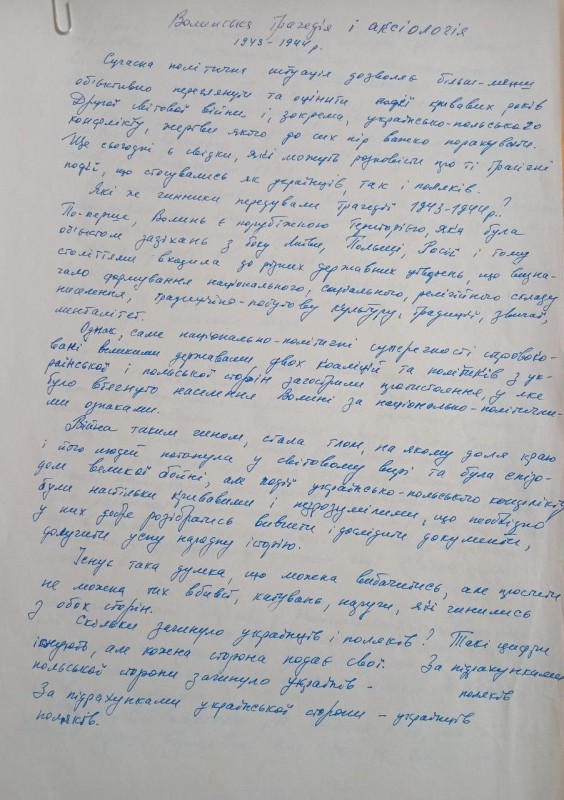 Волинська трагедія і аксіологія
1943-1944 р.
Сучасна політична ситуація дозволяє більш-менш
обʼєктивно переглянути та оцінити події кривавих років
Другої світової війни і, зокрема, українсько-польського
конфлікту, жертви якого до сих пір важко порахувати.
Ще сьогодні є свідки, які можуть розповісти про ті трагічні
події, що стосувались як українців, так і поляків.
Які ж чинники передували трагедії 1943-1944 р.?
По-перше, Волинь є порубіжною територією, яка була
обʼєктом зазіхань з боку Литви, Польщі, Росії і тому
століттями входила до різних державних утворень, що визна-
чало формування національного, соціального, релігійного складу
населення, традиційно-побутову культуру, традиції, звичаї,
менталітет.
Однак, саме національно-політичні суперечності спровоко-
вані великими державами двох коаліцій та політиків з ук-
раїнської і польської сторін загострили протистояння, у яке
було втягнуто населення Волині за національно-політични-
ми ознаками.
Війна таким чином, стала тлом, на якому доля краю
і його людей потонула у світовому вирі та була епізо-
дом великої бойні, але події українсько-польського конфлікту
були настільки кривавими і незрозумілими, що необхідно
у них добре розібратись вивчити і дослідити документи,
долучити усну народну історію.
Існує така думка, що можна вибачитись, але простити
не можна тих вбивств, катувань, наруги, які чинились
з обох сторін.
Скільки загинуло українців і поляків? Такі цифри
існують, але кожна сторона подає свої. За підрахунками
польської сторони загинуло українців - поляків
За підрахунками української сторони - українців
поляків.